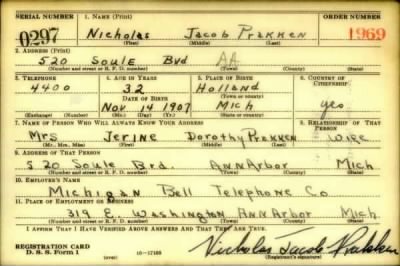 SERIAL NUMBER 1. NAME (Print) ORDER NUMBER
0297 Nicholas Jacob Prakken 1969
(First) (Middle) (Last)
2. ADDRESS (Print)
520 Soule Bvd AA
(Number and street or R. F. D. number) (Town) (County) (State)
3. TELEPHONE 4. AGE IN YEARS 5. PLACE OF BIRTH 6. COUNTRY OF CITIZENSHIP
4400 32 Holland
DATE OF BIRTH (Town or county)
Nov 14 1907 Mich yes
(Exchange) (Number) (Mo.) (Day) (Yr.) (State or country)
7. NAME OF PERSON WHO WILL ALWAYS KNOW YOUR ADDRESS 8. RELATIONSHIP OF THAT PERSON
Mrs Jerine Dorothy Prakken Wife
(Mr., Mrs., Miss) (First) (Middle) (Last)
9. ADDRESS OF THAT PERSON
520 Soule Bvd. Ann Arbor Mich
(Number and street or R. F. D. number) (Town) (County) (State)
10. EMPLOYER'S NAME
Michigan Bell Telephone Co
11. PLACE OF EMPLOYMENT OR BUSINESS
319 E. Washington Ann Arbor Mich
(Number and street or R. F. D. number) (Town) (County) (State)
I AFFIRM THAT I HAVE VERIFIED ABOVE ANSWERS AND THAT THEY ARE TRUE.
REGISTRATION CARD
D. S. S. Form 1 16-17105 Nicholas Jacob Prakken